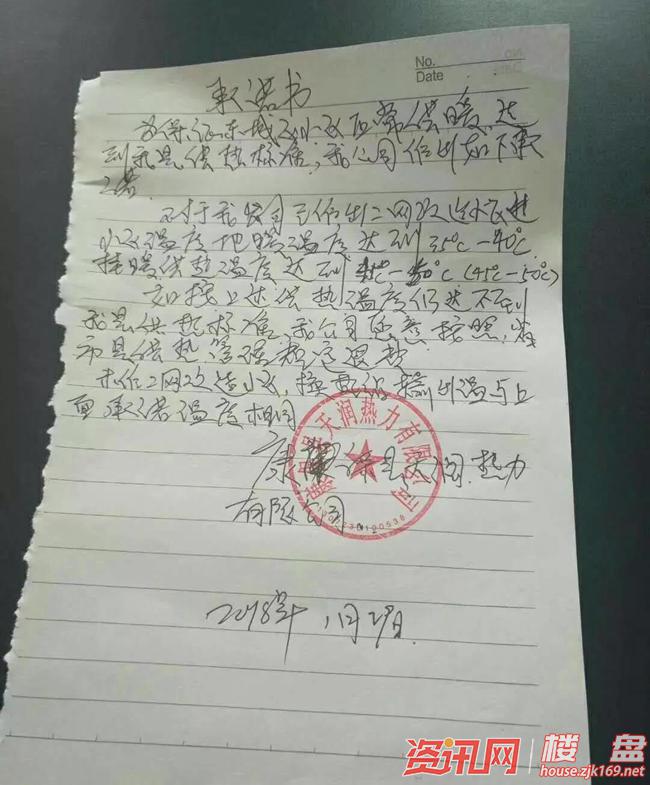 No.
Date
承诺书
为保证东城 小区正常供暖,达
到我县供热标准,我公司作出如下承
诺
对于我公司已作出二网改造
小区温度地暖温度达到35℃-40℃
挂暖供热温度达到 (45℃-50℃)
如按上述供热温度仍达不到
我县供热标准,我公司愿意按照
市县供热管理规定退费
未作二网改造小区,换热站输出温与上
面承诺温度相同
康保县天润热力
有限公司
康保县天润热力有限公司
2018年11月29日
资讯网 楼盘
house.zjk169.net